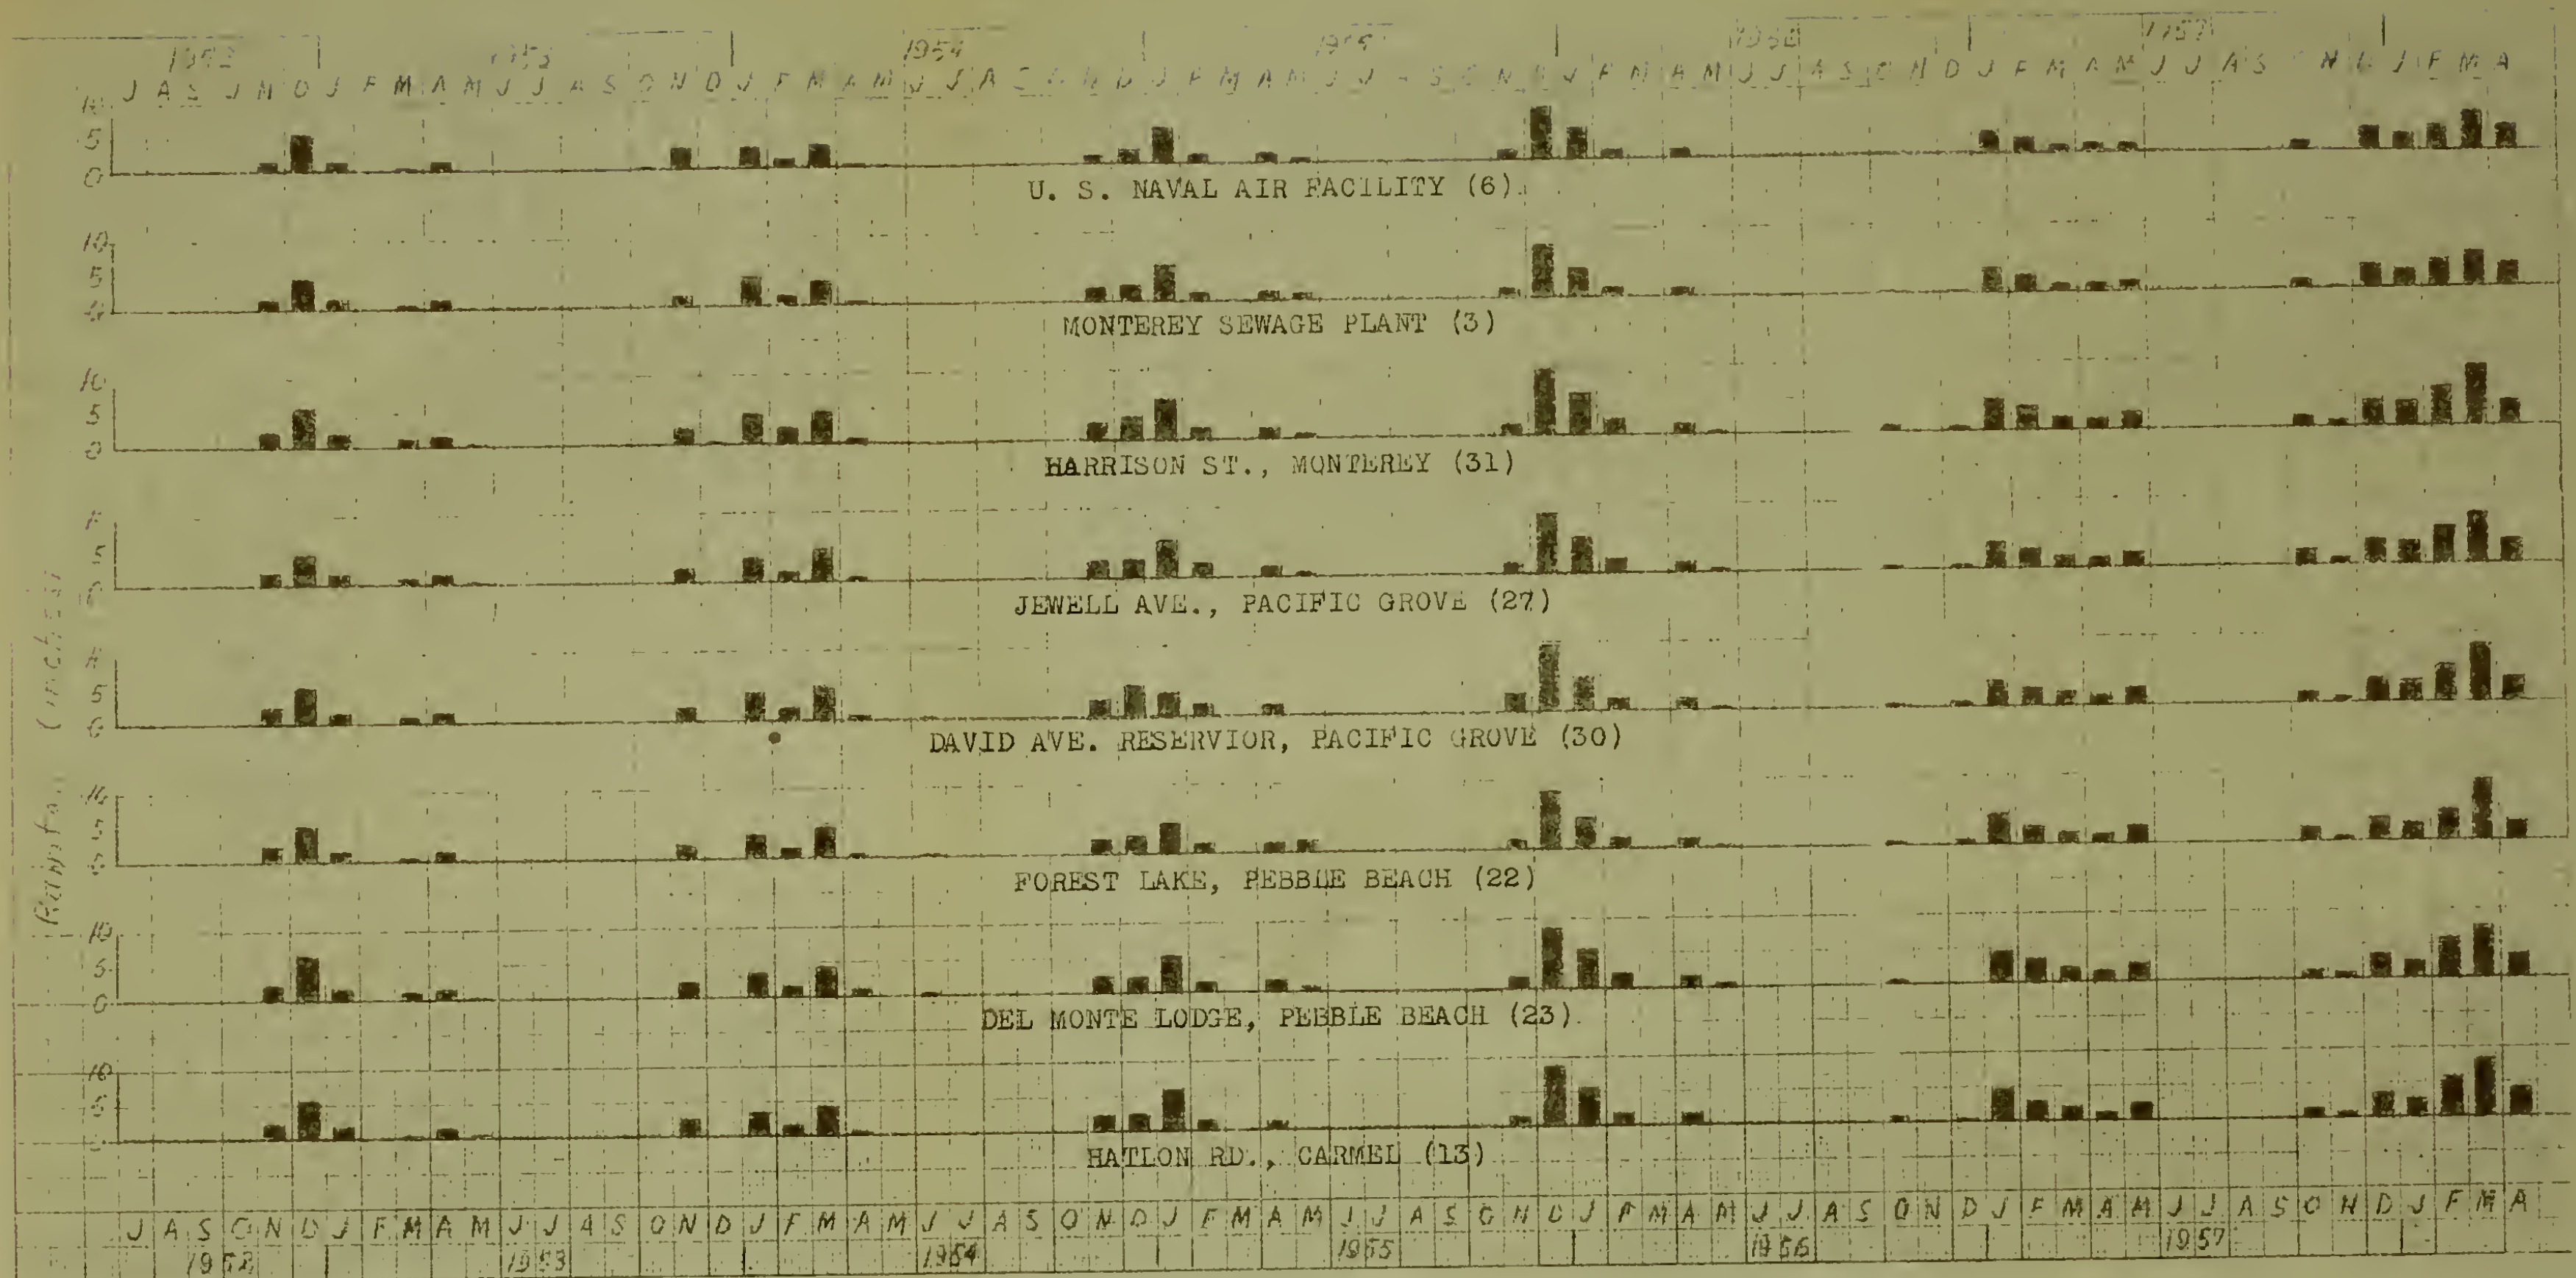 1952 1953 1954 1955 1956 1957
J A S O N D J F M A M J J A S O N D J F M A M J J A S O N D J F M A M J J A S O N D J F M A M J J A S O N D J F M A M J J A S O N D J F M A
5
0
U. S. NAVAL AIR FACILITY (6)
10
5
0
MONTEREY SEWAGE PLANT (3)
10
5
0
HARRISON ST., MONTEREY (31)
5
0
JEWELL AVE., PACIFIC GROVE (27)
5
0
DAVID AVE. RESERVIOR, PACIFIC GROVE (30)
10
5
0
FOREST LAKE, PEBBLE BEACH (22)
10
5
0
DEL MONTE LODGE, PEBBLE BEACH (23)
10
5
0
HATLON RD., CARMEL (13)
Rainfall (inches)
J A S O N D J F M A M J J A S O N D J F M A M J J A S O N D J F M A M J J A S O N D J F M A M J J A S O N D J F M A M J J A S O N D J F M A
1952 1953 1954 1955 1956 1957